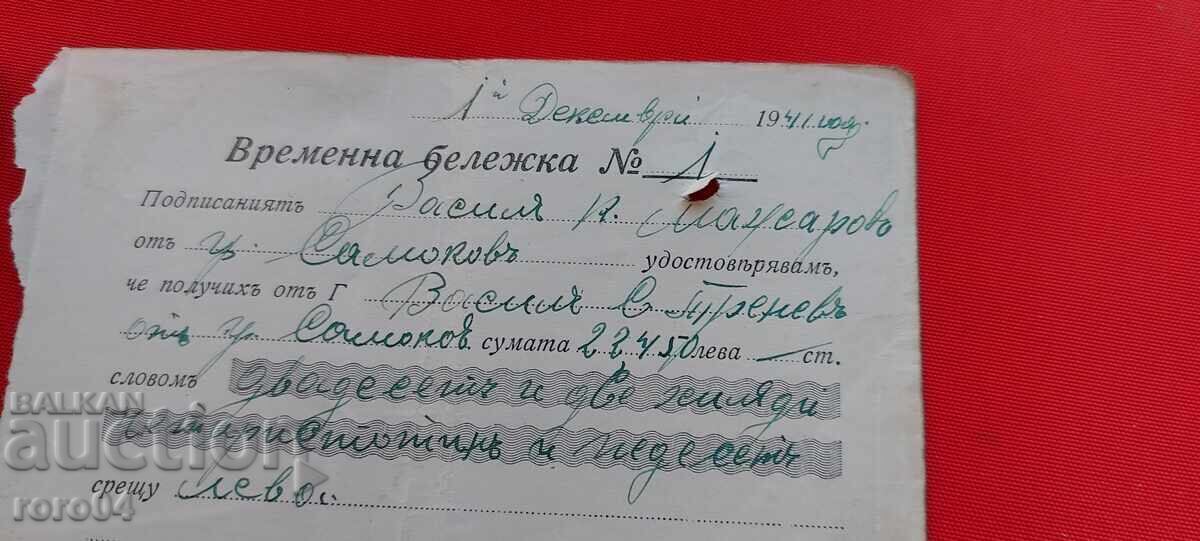 1й Декемврий 1941 год.
Временна бележка № 1
Подписаниятъ Василъ К. Мажаровъ
отъ гр. Самоковъ удостовѣрявамъ,
че получихъ отъ Г Василъ С. Треневъ
отъ гр. Самоковъ сумата 22450 лева — ст.
словомъ двадесетъ и две хиляди
четиристотинъ и педесетъ
срещу лева.
BALKAN
auction
roro04